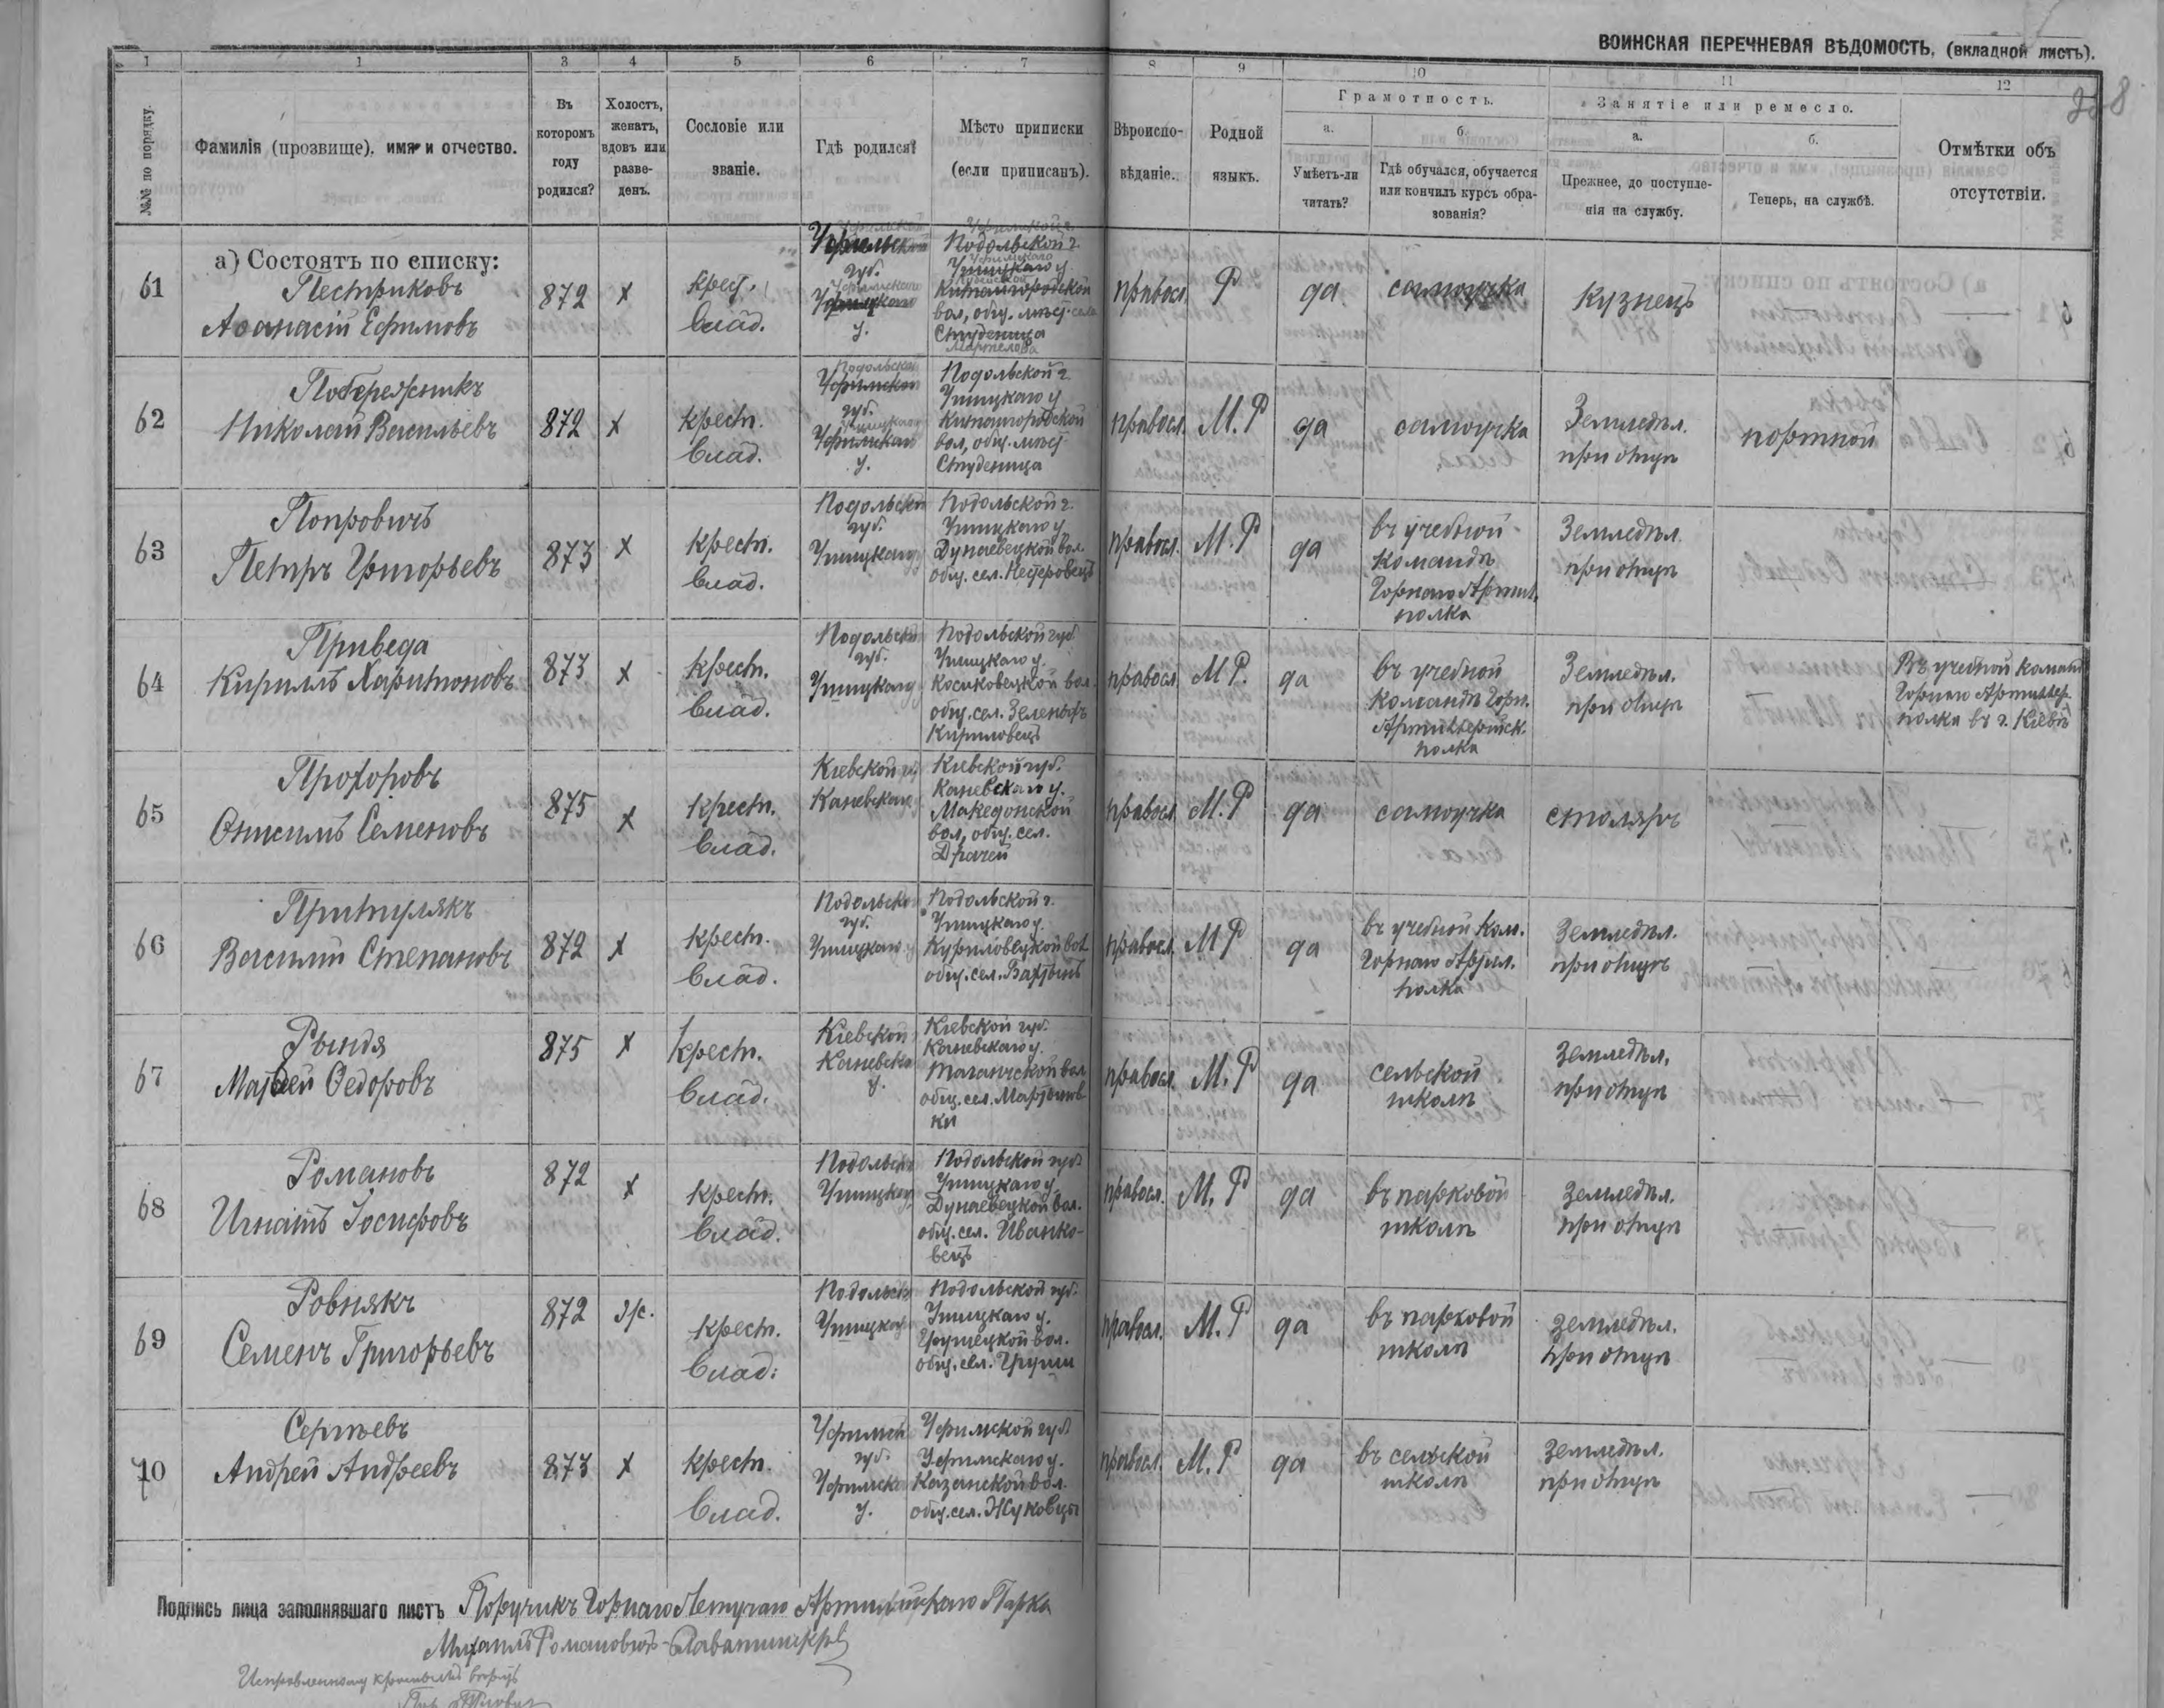 ВОИНСКАЯ ПЕРЕЧНЕВАЯ ВѢДОМОСТЬ, (вкладной листъ).
1 1 3 4 5 6 7 8 9 10 11 12
№№ по порядку.
Фамилія (прозвище), имя и отчество.
Въ которомъ году родился?
Холостъ, женатъ, вдовъ или разве-
денъ.
Сословіе или
званіе.
Гдѣ родился?
Мѣсто приписки
(если приписанъ).
Вѣроиспо-
вѣданіе.
Родной
языкъ.
Грамотность.
а.
Умѣетъ-ли
читать?
б.
Гдѣ обучался, обучается
или кончилъ курсъ обра-
зованія?
Занятіе или ремесло.
а.
Прежнее, до поступле-
нія на службу.
б.
Теперь, на службѣ.
Отмѣтки объ
отсутствіи.
а) Состоятъ по списку:
61
Пестриковъ
Аѳанасій Ефимовъ
872
х
крест.
влад.
губ.
у.
Подольской г.
Ушицкаго у.
Китайгородской
вол, общ. мѣст.
Студеница
правосл.
Р
да
самоучка
Кузнецъ
62
Побережникъ
Николай Васильевъ
872
х
крест.
влад.
Подольской
Уфимской
губ.
у.
Подольской г.
Ушицкаго у
Китайгородской
вол, общ. мѣст
Студеница
правосл.
М.Р
да
самоучка
Земледѣл.
при отцѣ
портной
63
Попровичъ
Петръ Григорьевъ
873
х
крест.
влад.
Подольской
губ.
Ушицкаго
Подольской г.
Ушицкаго у
Дунаевецкой вол.
общ. сел. Нестеровецъ
правосл.
М.Р
да
въ учебной
командѣ
Горнаго Артил.
полка
Земледѣл.
при отцѣ
64
Приведа
Кириллъ Харитоновъ
873
х
крест.
влад.
Подольской
губ.
Ушицкаго
Подольской губ
Ушицкаго у.
Косиковецкой вол.
общ. сел. Зеленыхъ
Куриловецъ
правосл.
М Р.
да
въ учебной
командѣ Горн.
Артиллерійск.
полка
Земледѣл.
при отцѣ
Въ учебной команд
Горнаго Артиллер.
полка въ г. Кіевѣ
65
Прохоровъ
Онисимъ Семеновъ
875
х
крест.
влад.
Кіевской губ
Каневскаго
Кіевской губ.
Каневскаго у.
Македонской
вол, общ. сел.
Драчей
правосл
М.Р
да
самоучка
столяръ
66
Притулякъ
Василий Степановъ
872
х
крест.
влад.
Подольской
губ.
Ушицкаго у
Подольской г.
Ушицкаго у.
Куриловецкой вол
общ. сел.
правосл.
М Р
да
въ учебной ком.
Горнаго Артил.
полка
Земледѣл.
при отцѣ
67
Рындя
Матвей Ѳедоровъ
875
х
крест.
влад.
Кіевской
Каневска
у.
Кіевской губ.
Каневскаго у.
Таганчской вол
общ. сел. Мартынов
ки
правосл.
М.Р
да
сельской
школѣ
Земледѣл.
при отцѣ
68
Романовъ
Игнатъ Іосифовъ
872
х
крест.
влад.
Подольск
Ушицкаго
Подольской губ
Ушицкаго у
Дунаевецкой вол.
общ. сел. Иванко-
вецъ
правосл.
М.Р
да
въ парковой
школѣ
Земледѣл.
при отцѣ
69
Ровнякъ
Семенъ Григорьевъ
872
ж.
крест.
влад.
Подольск
Ушицкаго
Подольской губ.
Ушицкаго у.
Грушецкой вол.
общ. сел. Груши
правосл.
М.Р
да
въ парковой
школѣ
Земледѣл.
при отцѣ
70
Сергѣевъ
Андрей Андреевъ
873
х
крест.
влад.
Уфимск
губ.
Уфимска
у.
Уфимской губ
Уфимскаго у.
Казанской вол.
общ. сел. Жуковцы
правосл.
М.Р
да
въ сельской
школѣ
Земледѣл.
при отцѣ
Подпись лица заполнявшаго листъ Поручикъ Горнаго Летучаго Артиллерійскаго Парка
Михаилъ Романовичъ